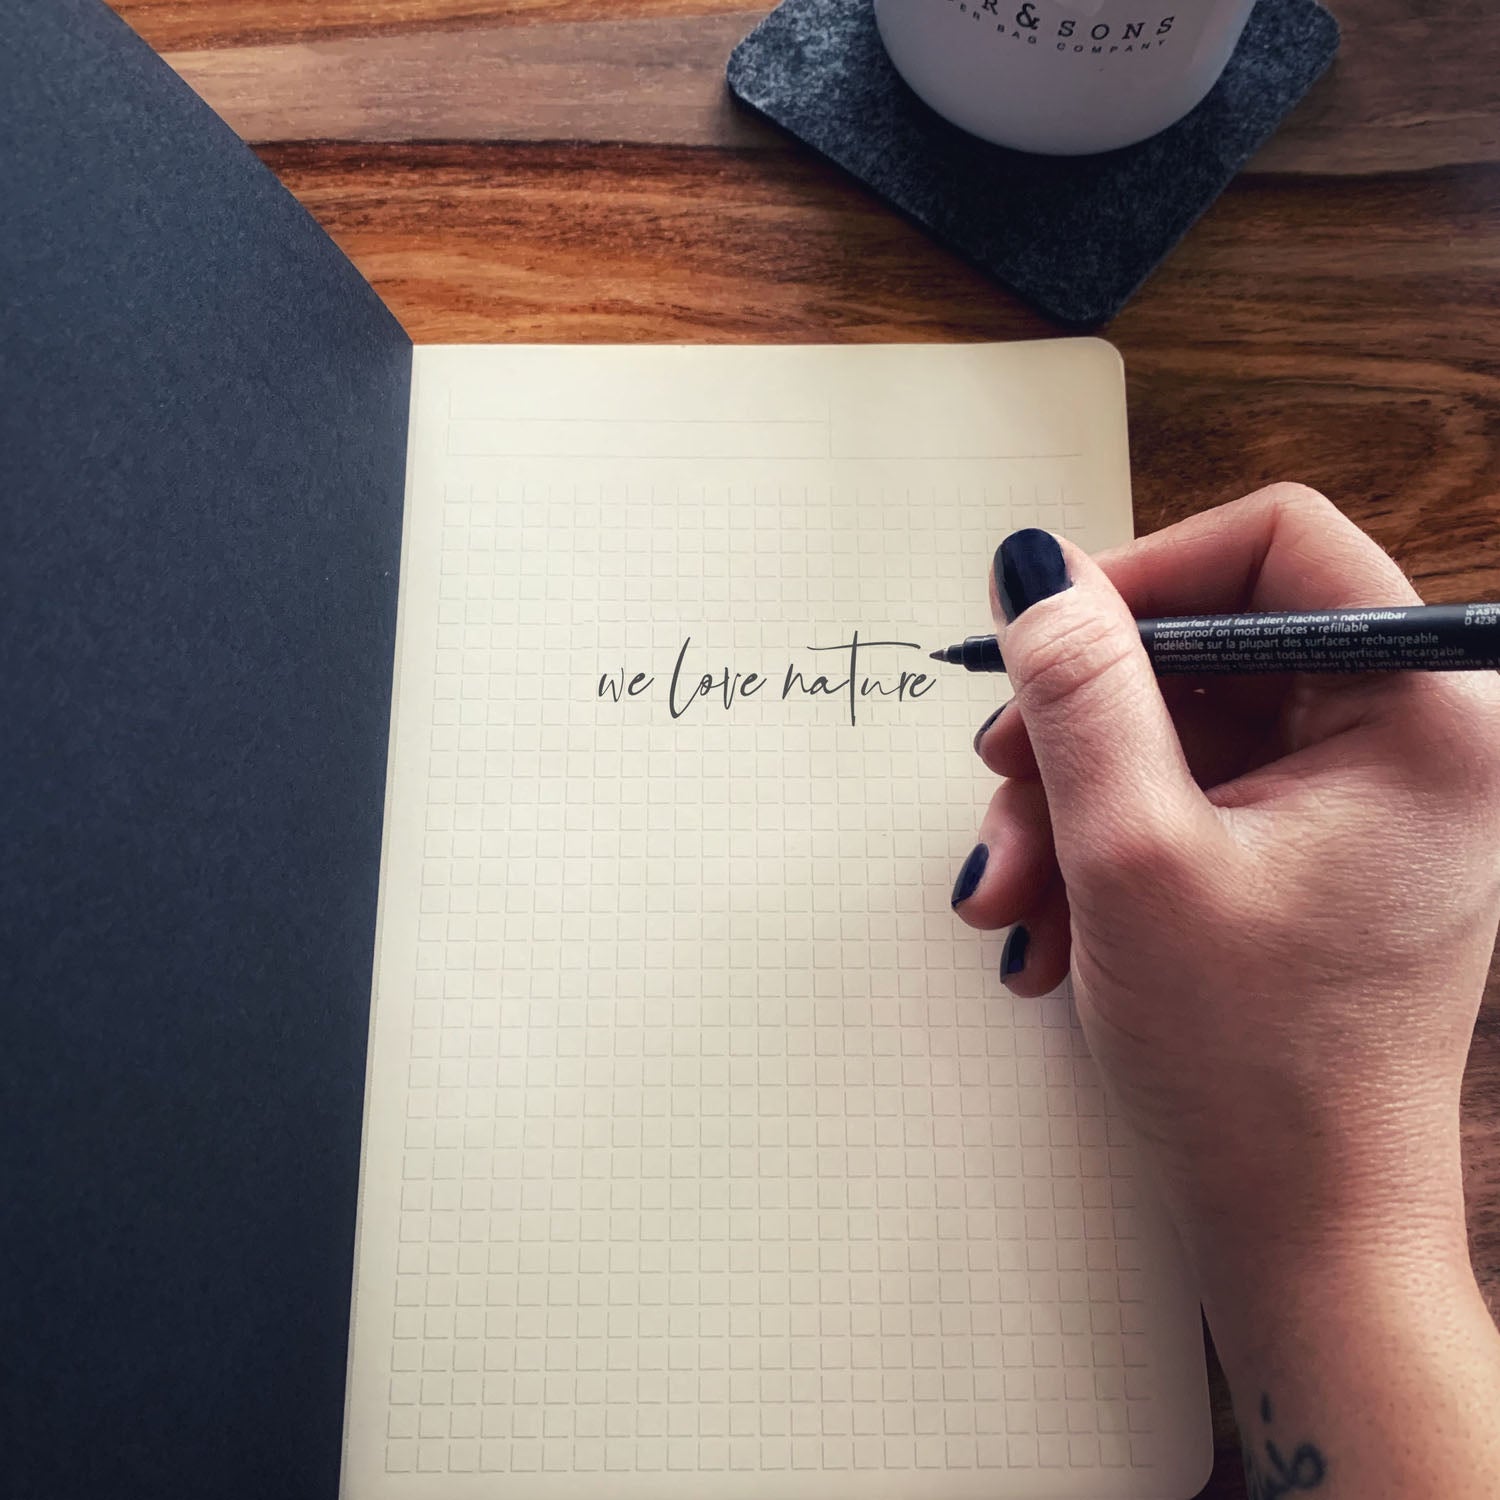 R & SONS
ER BAG COMPANY
we love nature
wasserfest auf fast allen Flächen • nachfüllbar
waterproof on most surfaces • refillable
indélébile sur la plupart des surfaces • rechargeable
permanente sobre casi todas las superficies • recargable
lightfast • résistent à la lumière • resistente
to ASTM
D 4236